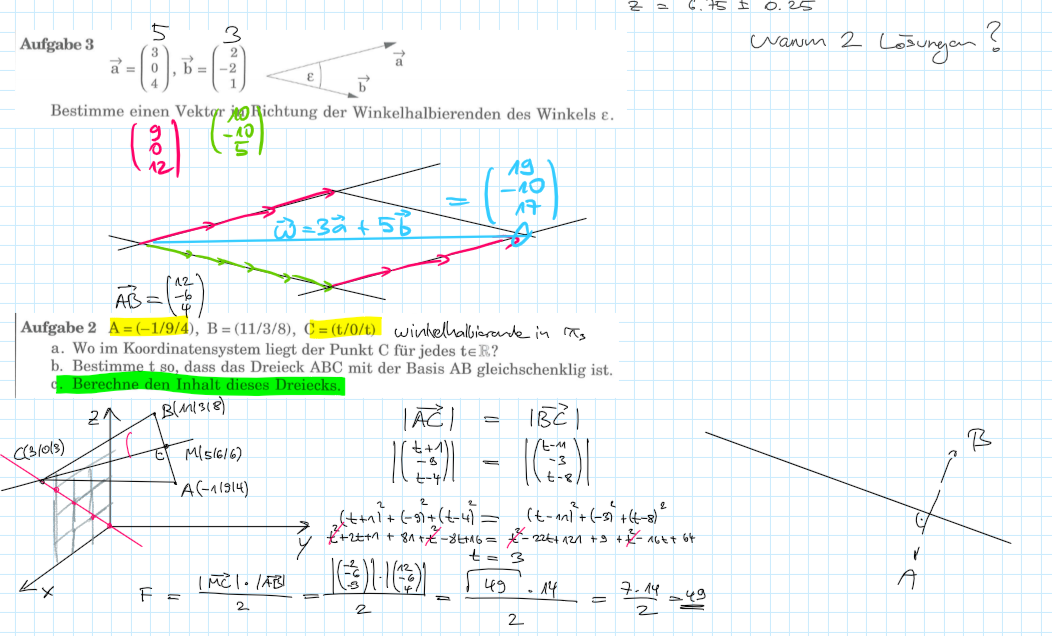 z = 6.75 ± 0.25
Warum 2 Lösungen?
5 3
Aufgabe 3
a = (3 0 4), b = (2 -2 1)
ε a b
Bestimme einen Vektor in Richtung der Winkelhalbierenden des Winkels ε.
(9 0 12) (10 -10 5)
w = 3a + 5b = (19 -10 17)
AB = (12 -6 4)
Aufgabe 2 A = (−1/9/4), B = (11/3/8), C = (t/0/t) winkelhalbierende in π3
a. Wo im Koordinatensystem liegt der Punkt C für jedes t∈ℝ?
b. Bestimme t so, dass das Dreieck ABC mit der Basis AB gleichschenklig ist.
c. Berechne den Inhalt dieses Dreiecks.
z B(11/3/8)
C(3/0/3) M(5/6/6)
A(-1/9/4)
y
x
|AC| = |BC|
|(t+1 -9 t-4)| = |(t-11 -3 t-8)|
(t+1)² + (-9)² + (t-4)² = (t-11)² + (-3)² + (t-8)²
t² + 2t + 1 + 81 + t² - 8t + 16 = t² - 22t + 121 + 9 + t² - 16t + 64
t = 3
F = |MC| · |AB| / 2 = |(-2 -6 -3)| · |(12 -6 4)| / 2 = √49 · 14 / 2 = 7·14 / 2 = 49
B
A